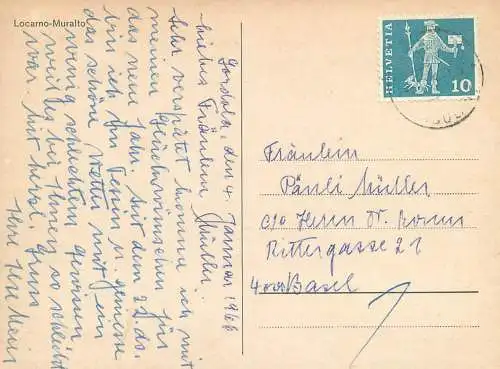 Locarno-Muralto
Gordola, den 4. Januar 1966
Liebes Fräulein Müller.
Sehr verspätet komme ich mit
meinen Glückwünschen für
das neue Jahr. Seit dem 22. dz.
bin ich im Tessin u. geniesse
das schöne Wetter mit ein
wenig schlechtem Gewissen,
weil es bei Ihnen so schlecht
war. Mit herzl. Gruss
Ihre
HELVETIA
10
Fräulein
Päuli Müller
c/o Herrn Dr.
Rittergasse 21
4000 Basel